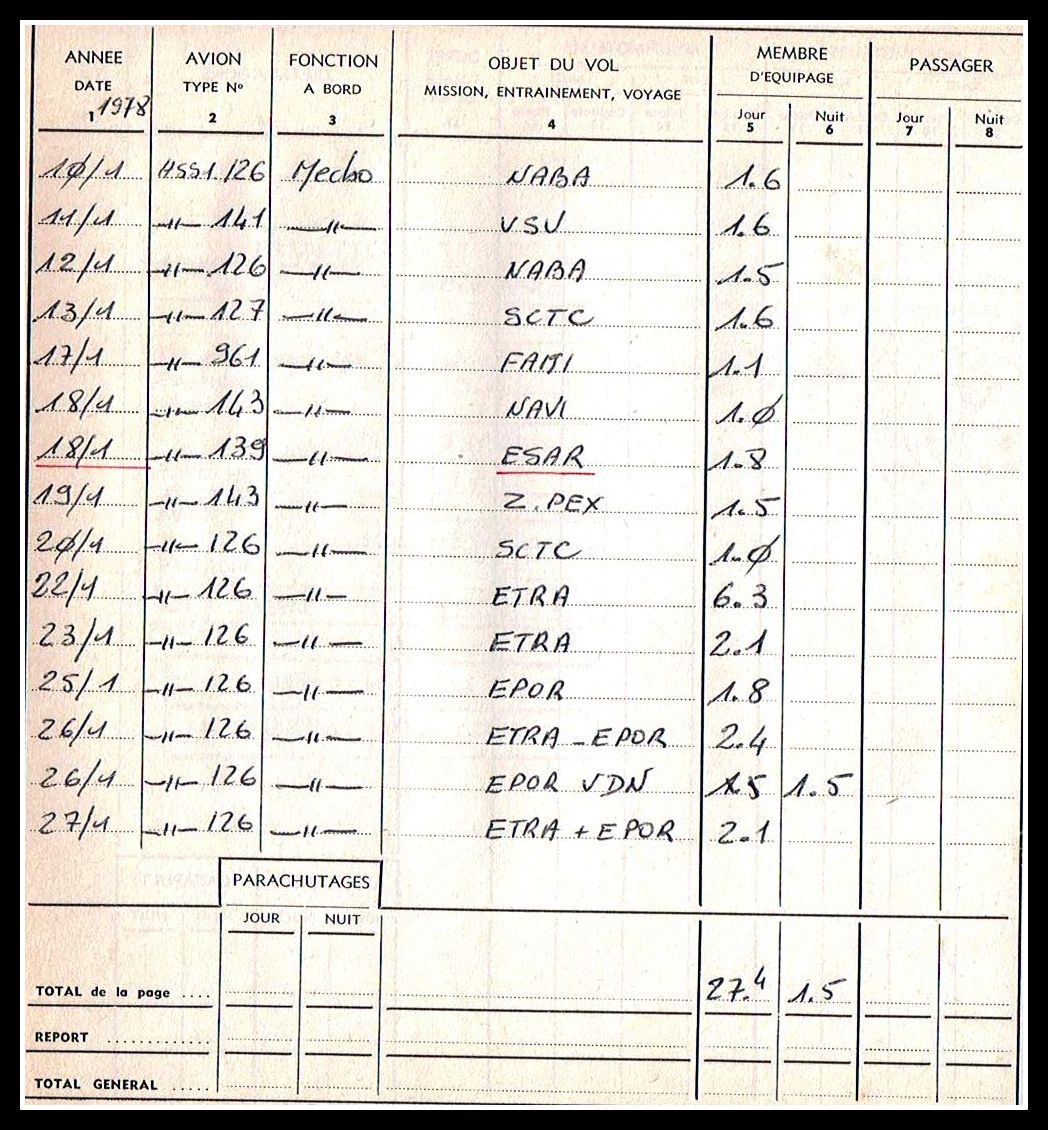 ANNEE AVION FONCTION OBJET DU VOL MEMBRE D'EQUIPAGE PASSAGER
DATE TYPE Nº A BORD MISSION, ENTRAINEMENT, VOYAGE Jour Nuit Jour Nuit
1 1978 2 3 4 5 6 7 8
1Ø/1 HSS1 126 Mecbo NABA 1.6
11/1 —〃— 141 —〃— VSV 1.6
12/1 —〃— 126 —〃— NABA 1.5
13/1 —〃— 127 —〃— SCTC 1.6
17/1 —〃— 961 —〃— 1.1
18/1 —〃— 143 —〃— NAVI 1.Ø
18/1 —〃— 139 —〃— ESAR 1.8
19/1 —〃— 143 —〃— Z.PEX 1.5
2Ø/1 —〃— 126 —〃— SCTC 1.Ø
22/1 —〃— 126 —〃— ETRA 6.3
23/1 —〃— 126 —〃— ETRA 2.1
25/1 —〃— 126 —〃— EPOR 1.8
26/1 —〃— 126 —〃— ETRA - EPOR 2.4
26/1 —〃— 126 —〃— EPOR VDN 1.5 1.5
27/1 —〃— 126 —〃— ETRA + EPOR 2.1
PARACHUTAGES
JOUR NUIT
TOTAL de la page .... 27.4 1.5
REPORT ............
TOTAL GENERAL .....